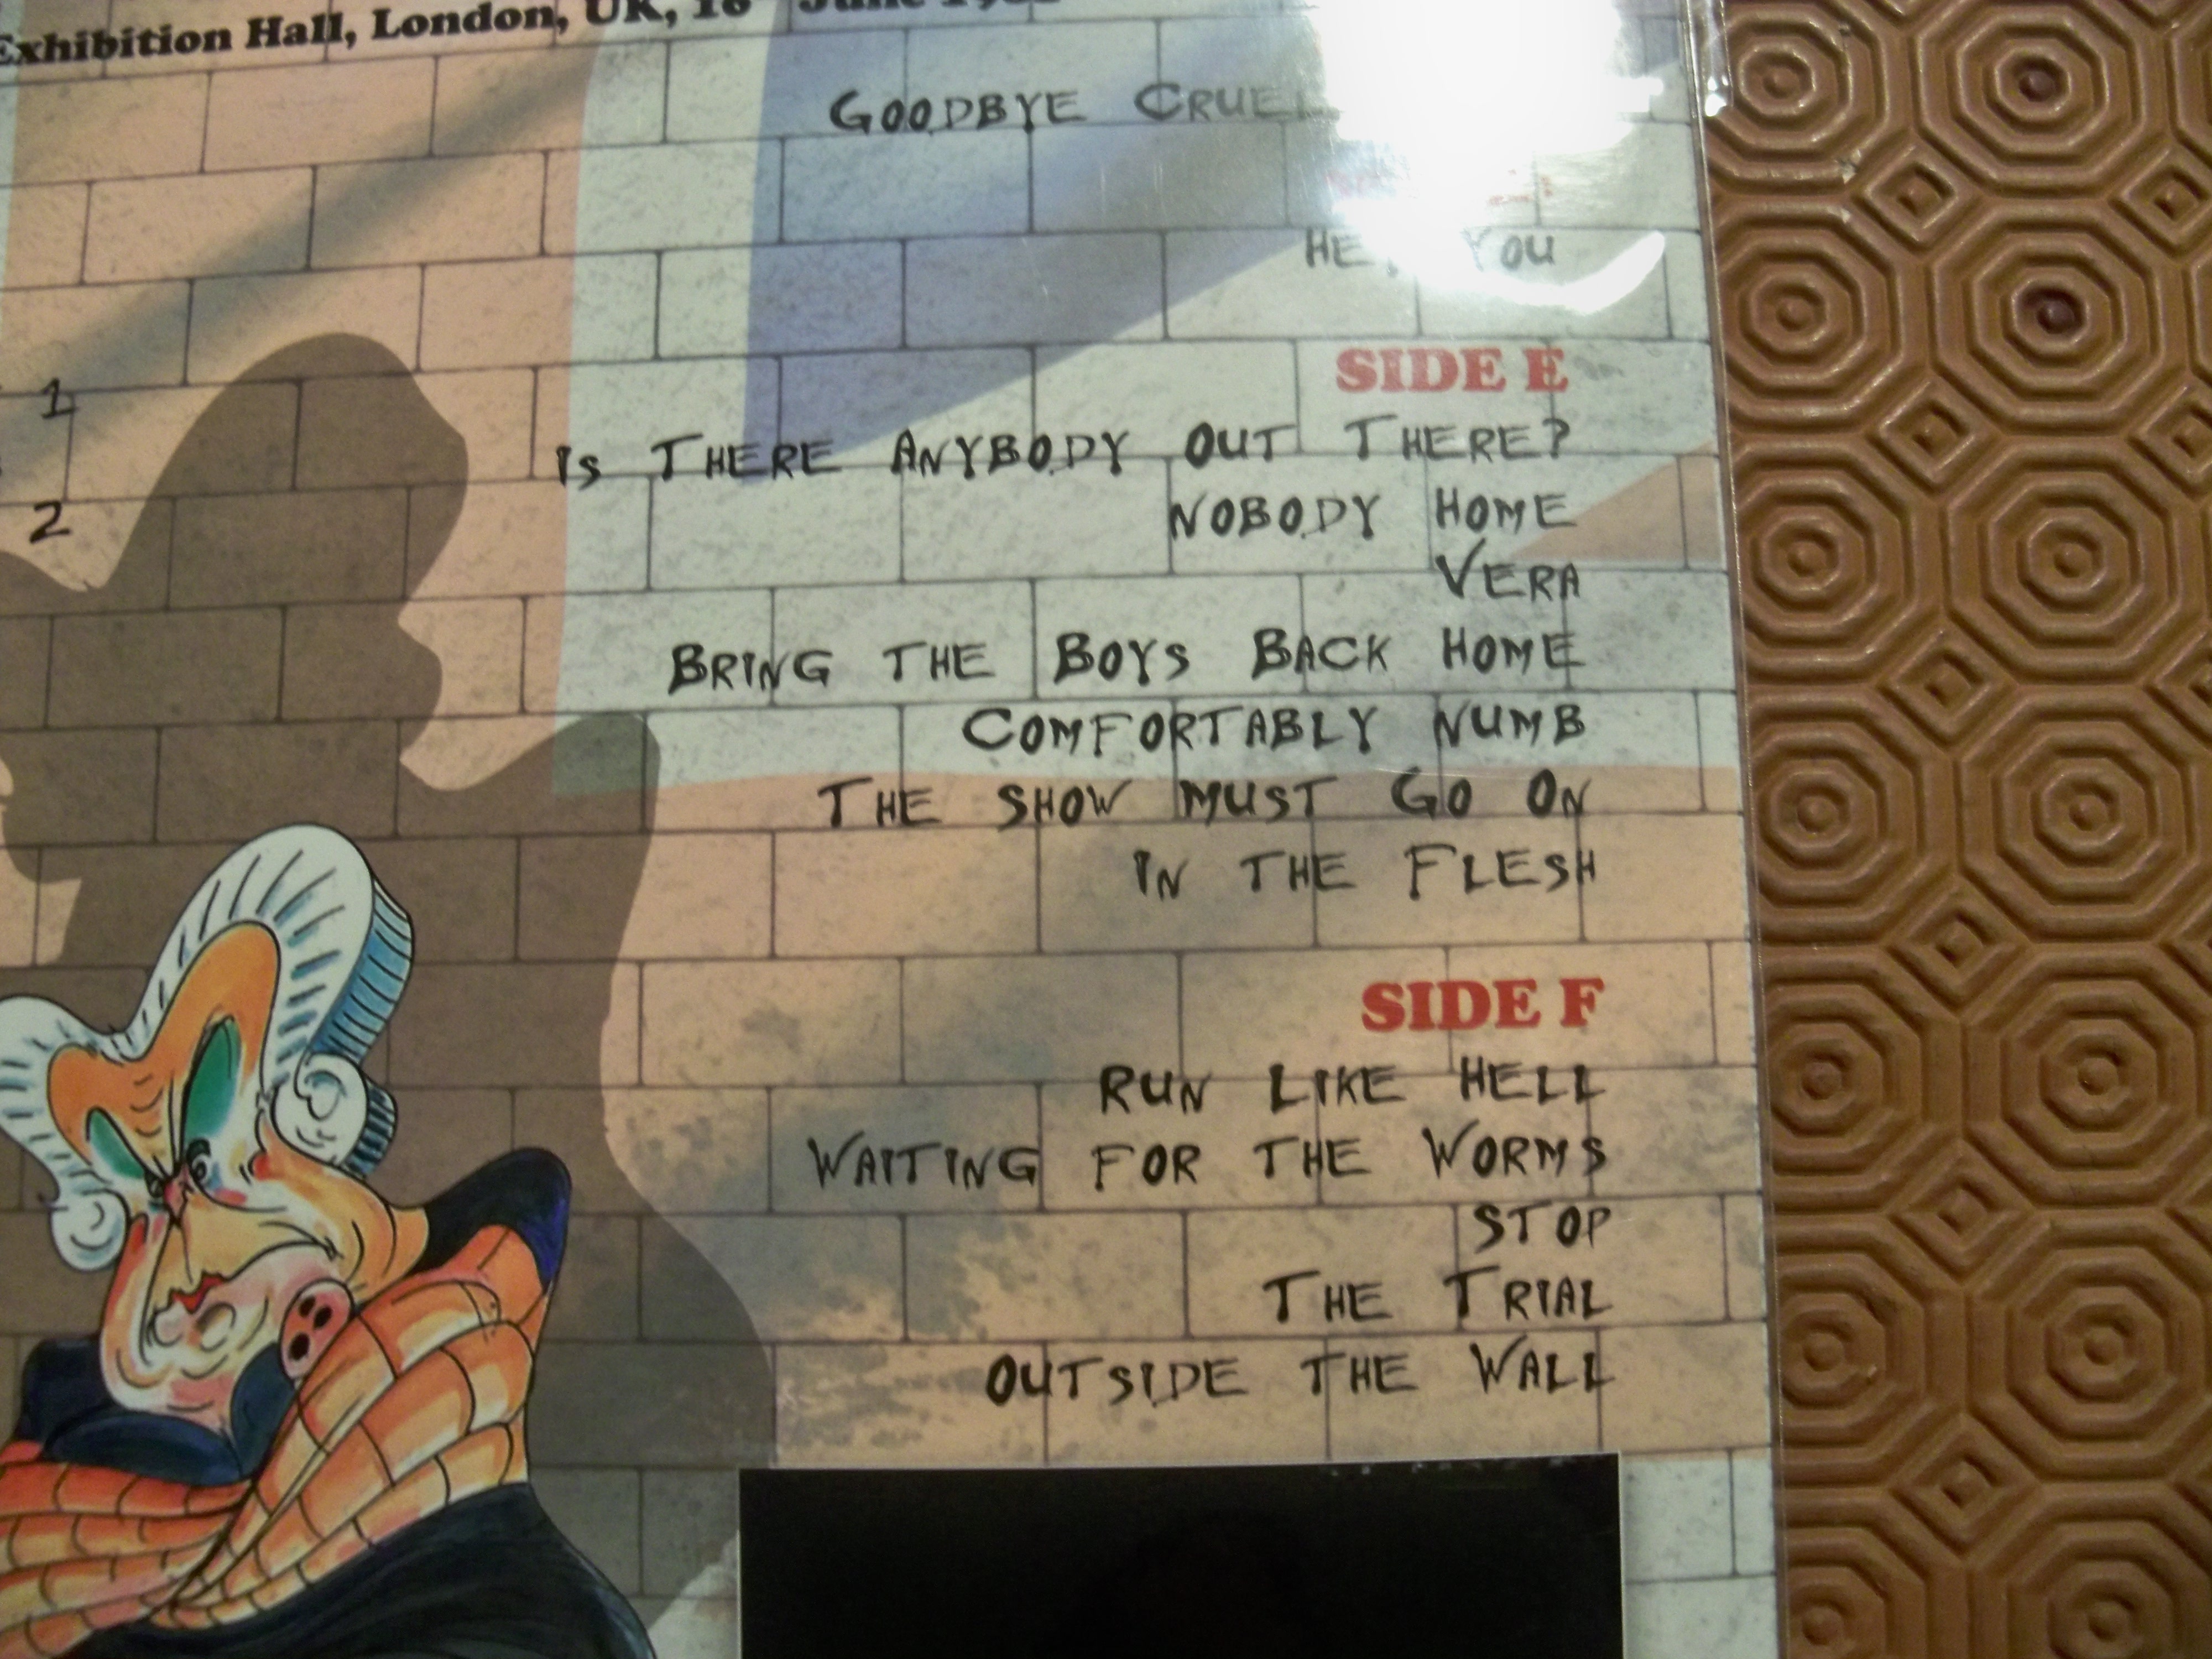 Exhibition Hall, London, UK, 16 June
GOODBYE CRUEL
HEY YOU
1
2
SIDE E
IS THERE ANYBODY OUT THERE?
NOBODY HOME
VERA
BRING THE BOYS BACK HOME
COMFORTABLY NUMB
THE SHOW MUST GO ON
IN THE FLESH
SIDE F
RUN LIKE HELL
WAITING FOR THE WORMS
STOP
THE TRIAL
OUTSIDE THE WALL